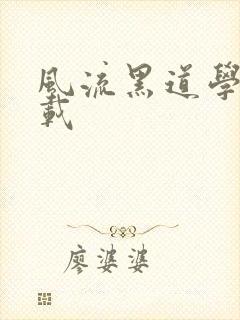 風流黑道學
載
廖婆婆